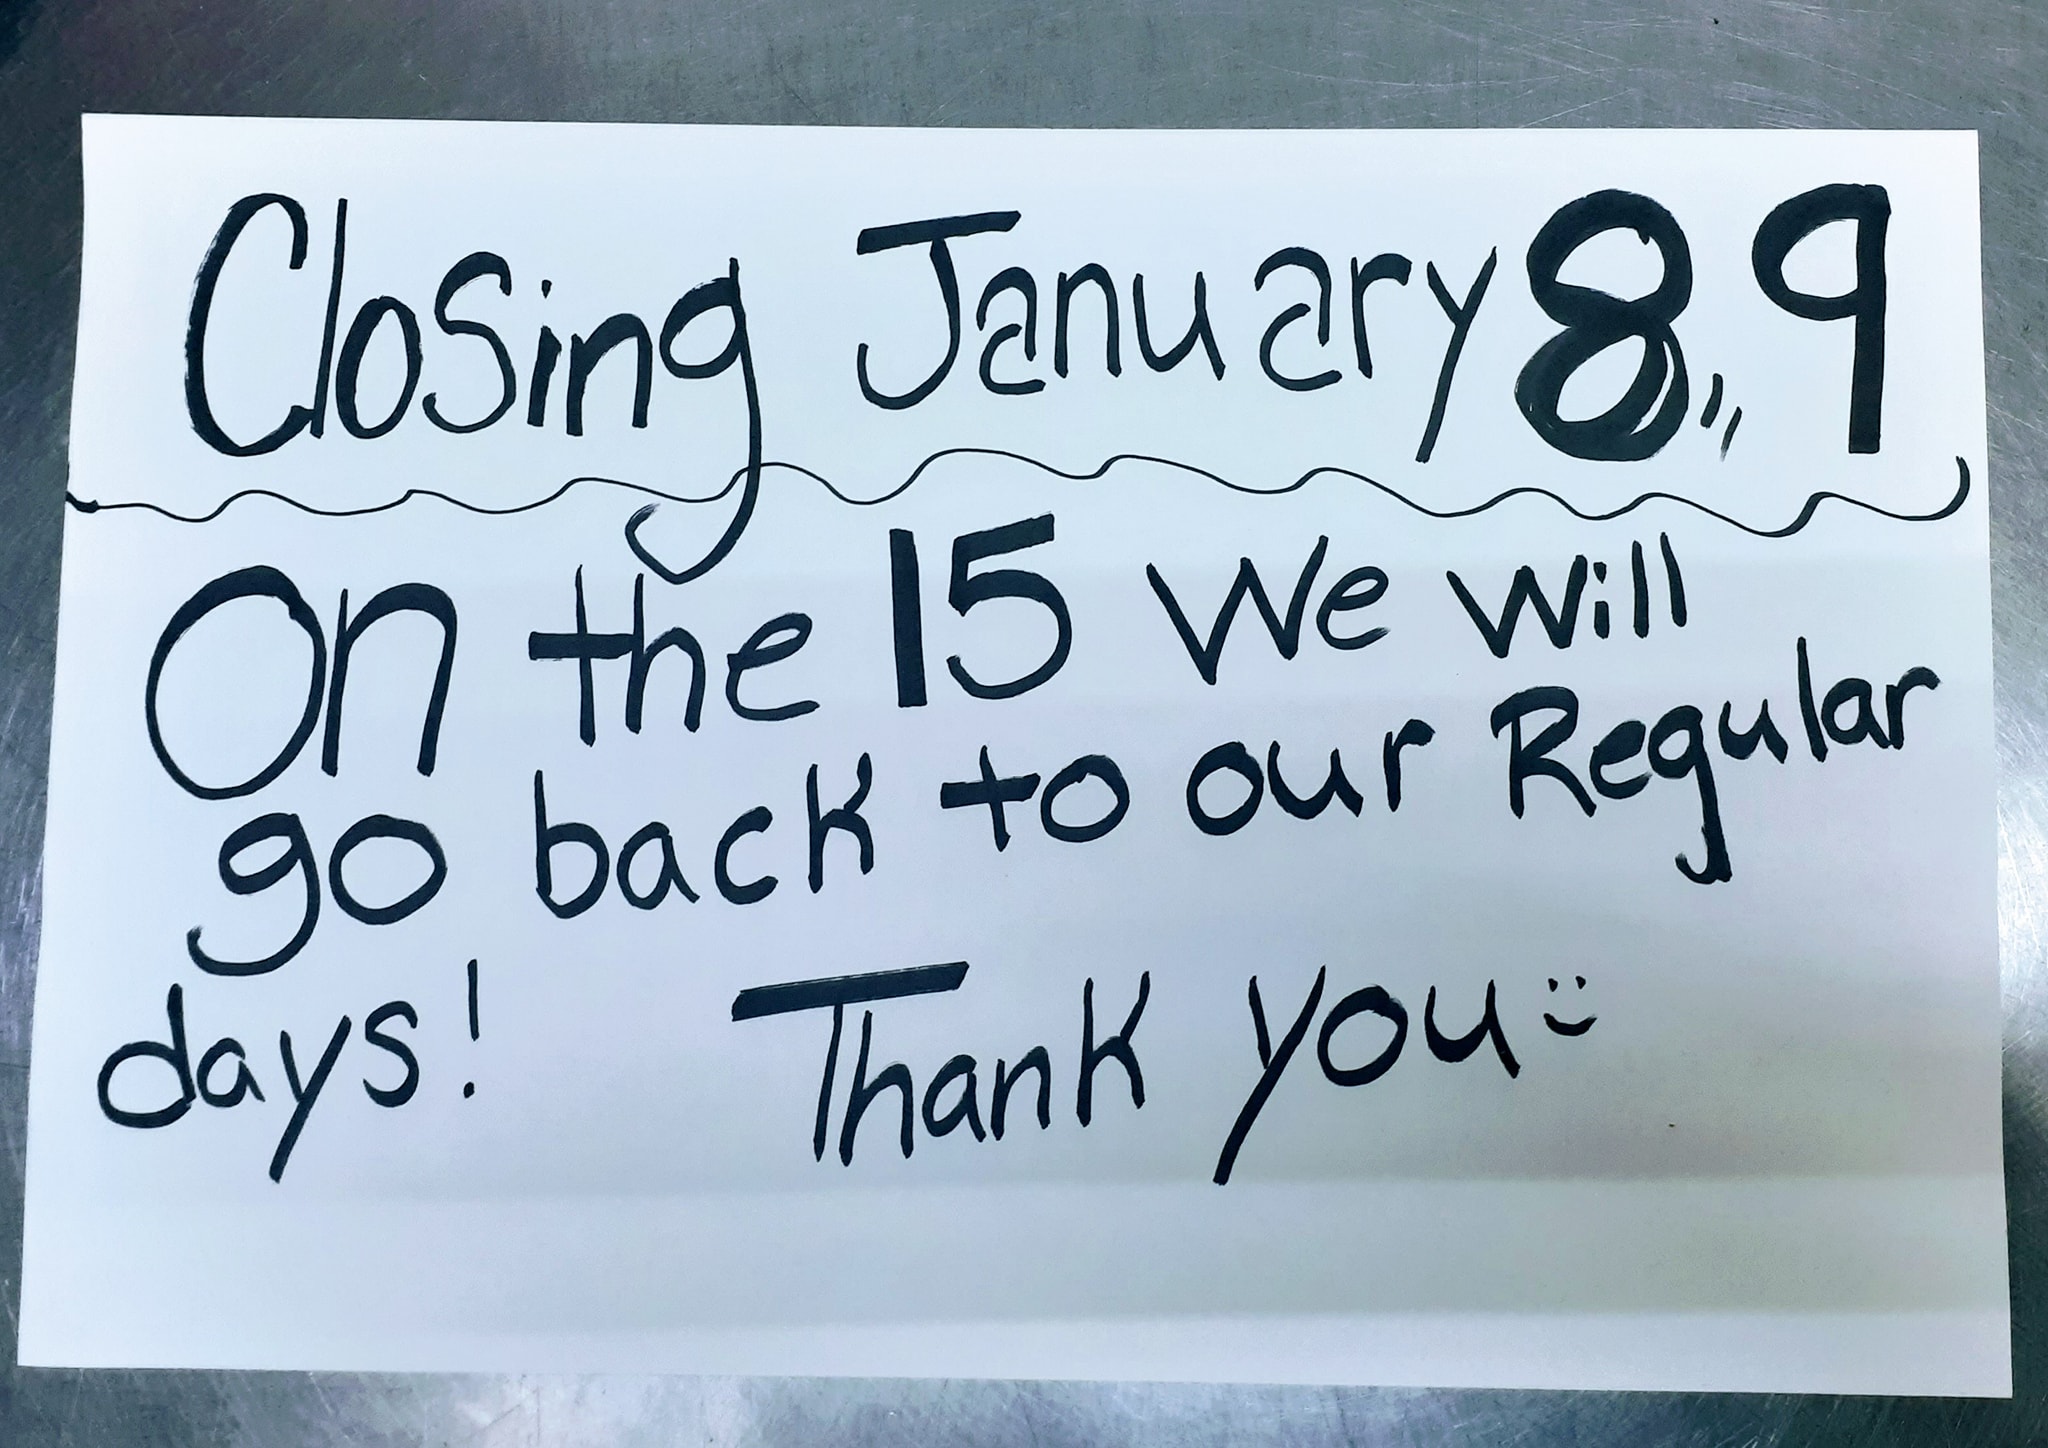 Closing January 8,, 9
On the 15 We will
go back to our Regular
days! Thank you :)